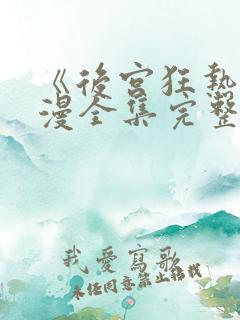 《後宮狂熱
漫全集完整
我愛寫歌
未經同意禁止轉載